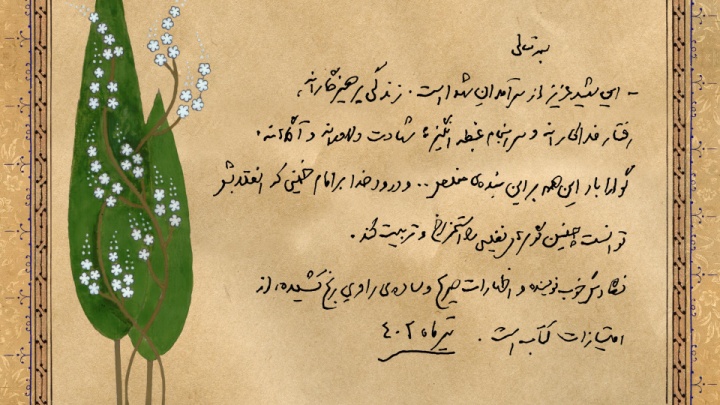 بسمه تعالی
- این شهید عزیز از سرآمدان شهدا است. زندگی پرهیزگارانه،
رفتار فداکارانه و سرانجام غبطه‌انگیز با شهادت دلاورانه و آگاهانه.
گوارا باد این همه بر این بنده‌ی مخلص .. و درود خدا بر امام خمینی که انقلابش
توانست چنین گوهرهای نفیسی را استخراج و تربیت کند.
نگارش خوب نویسنده و اظهارات صریح و ساده‌ی راوی رنج کشیده، از
امتیازات کتاب است. تیر ماه ۴۰۲